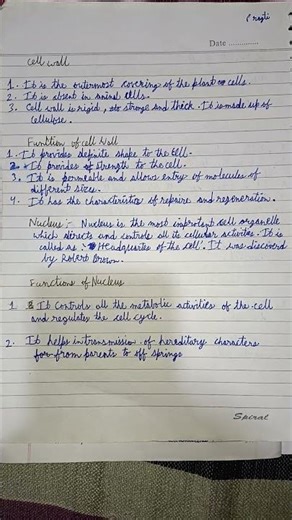 Pragti
Date ............
Cell wall
1. It is the outermost covering of the plant cells.
2. It is absent in animal cells.
3. Cell wall is rigid, strong and thick. It is made up of
cellulose.
Function of cell Wall
1. It provides definite shape to the cell.
2. It provides strength to the cell.
3. It is permeable and allows entry of molecules of
different sizes.
4. It has the characteristics of repaire and regeneration.
Nucleus :- Nucleus is the most improtent cell organelle
which directs and controls all its cellular activites. It is
called as :- "Headquartes of the cell". It was discovered
by Robert Brown.
Functions of Nucleus
1. It controls all the metabolic activities of the cell
and regulates the cell cycle.
2. It helps in transmission of hereditary characters
from parents to off springs
Spiral